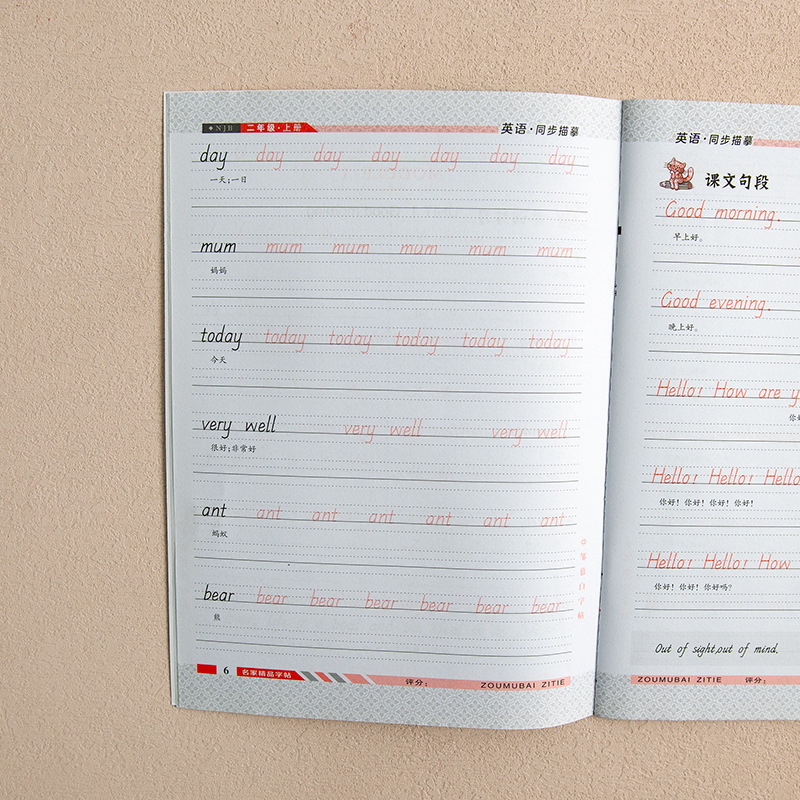 NJB 二年级·上册 英语·同步描摹
day day day day day day day
一天;一日
mum mum mum mum mum mum
妈妈
today today today today today today
今天
very well very well very well
很好;非常好
ant ant ant ant ant ant ant
蚂蚁
bear bear bear bear bear bear bear
熊
©邹慕白字帖
6 名家精品字帖 评分: ZOUMUBAI ZITIE
英语·同步描摹
课文句段
Good morning.
早上好。
Good evening.
晚上好。
Hello! How are y
你好
Hello! Hello! Hello
你好! 你好! 你好! 你好!
Hello! Hello! How
你好! 你好! 你好吗?
Out of sight,out of mind.
ZOUMUBAI ZITIE 评分: